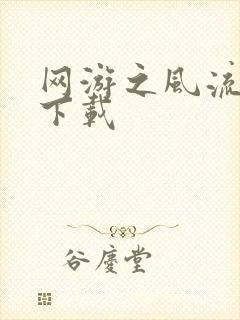 网游之风流
下载
谷庆堂